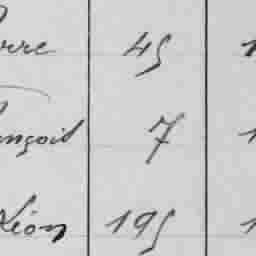 erre 45 1
ançois 7 1
Léon 195 1